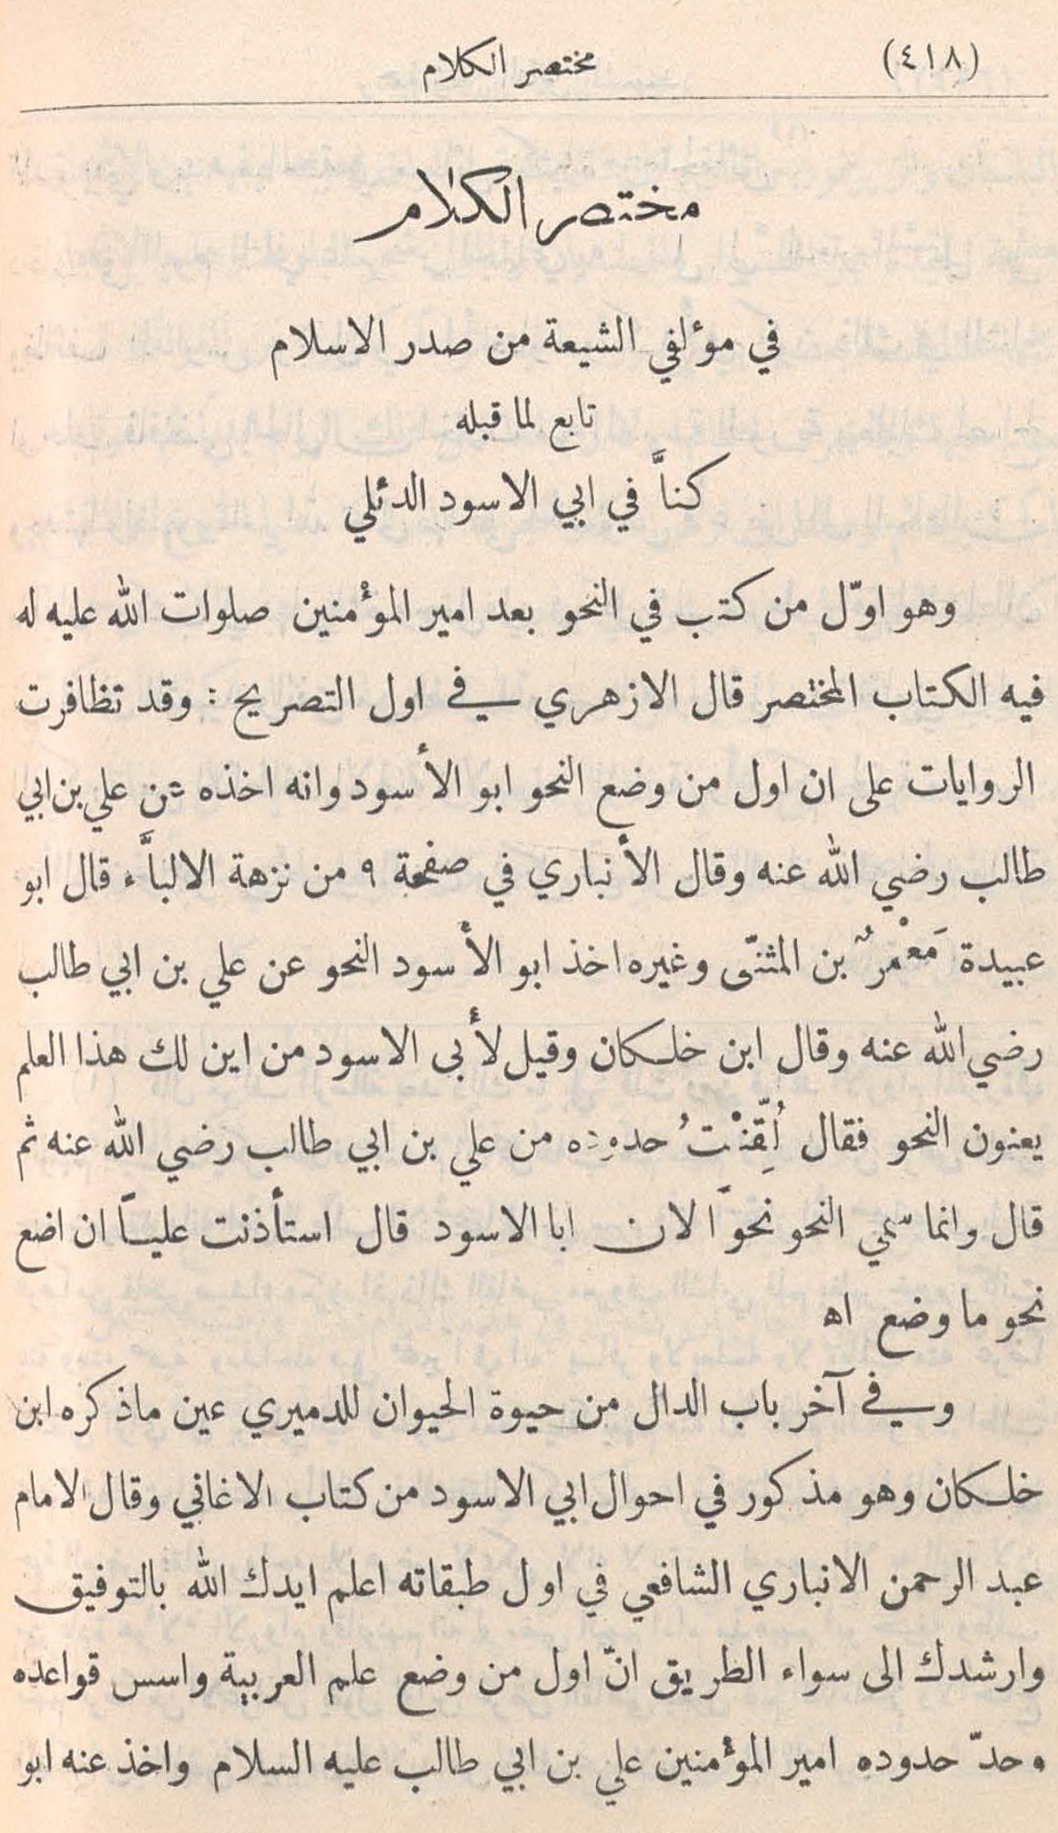 (٤١٨)
مختصر الكلام
مختصر الكلام
في مؤلفي الشيعة من صدر الاسلام
تابع لما قبله
كناَّ في ابي الاسود الدئلي
وهو اوّل من كتب في النحو بعد امير المؤمنين صلوات الله عليه له
فيه الكتاب المختصر قال الازهري في اول التصريح : وقد تظافرت
الروايات على ان اول من وضع النحو ابو الأسود وانه اخذه عن علي بن ابي
طالب رضي الله عنه وقال الأنباري في صفحة ٩ من نزهة الالباَّء قال ابو
عبيدة مَعْمرٌ بن المثنّى وغيره اخذ ابو الأسود النحو عن علي بن ابي طالب
رضي الله عنه وقال ابن خلكان وقيل لأبي الاسود من اين لك هذا العلم
يعنون النحو فقال لُقِّنْتُ حدوده من علي بن ابي طالب رضي الله عنه ثم
قال وانما سمي النحو نحوًا لان ابا الاسود قال استأذنت عليًا ان اضع
نحو ما وضع اه
وفي آخر باب الدال من حيوة الحيوان للدميري عين ماذكره ابن
خلكان وهو مذكور في احوال ابي الاسود من كتاب الاغاني وقال الامام
عبد الرحمن الانباري الشافعي في اول طبقاته اعلم ايدك الله بالتوفيق
وارشدك الى سواء الطريق انّ اول من وضع علم العربية واسس قواعده
وحدّ حدوده امير المؤمنين علي بن ابي طالب عليه السلام واخذ عنه ابو